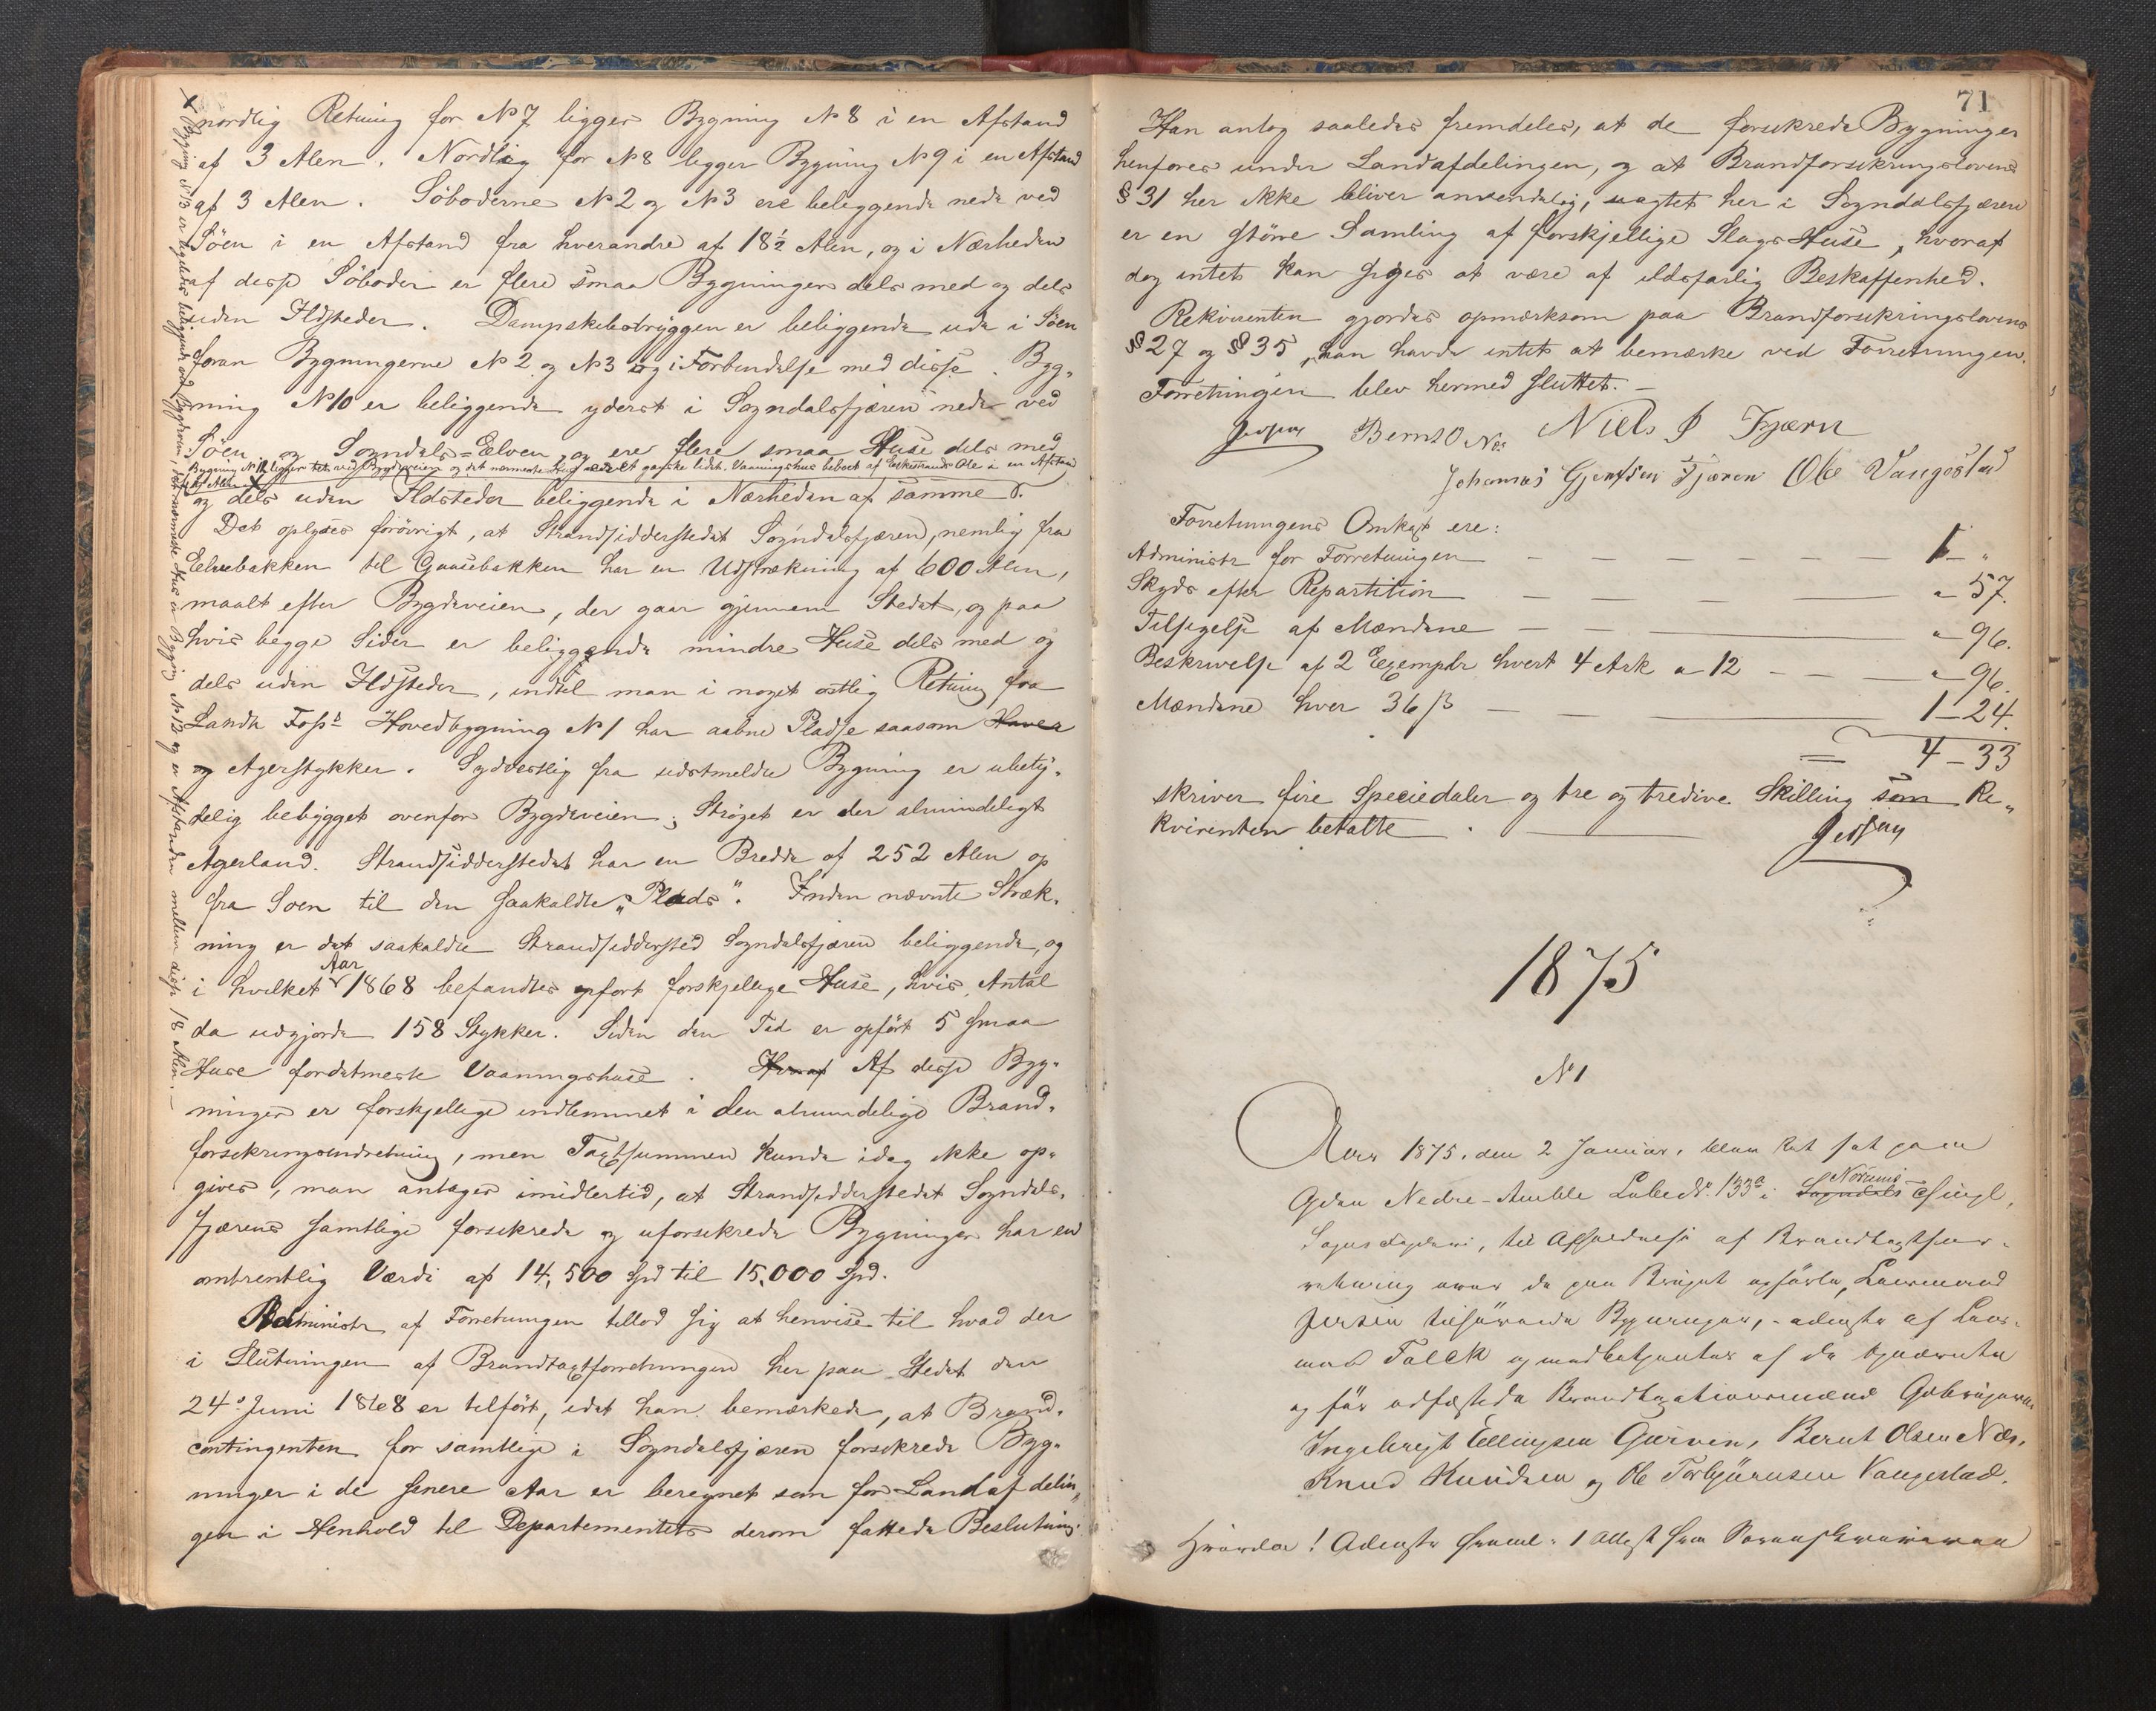 nordlig Retning for No 7 ligger Bygning No 8 i en Afstand
af 3 Alen. Nordlig for No 8 ligger Bygning No 9 i en Afstand
af 3 Alen. Söboderne No 2 og No 3 ere beliggende nede ved
Söen i en Afstand fra hverandre af 18½ Alen, og i Nærheden
af disse Söboder er flere smaa Bygninger dels med og dels
uden Ildsteder. Dampskibsbryggen er beliggende ude i Söen
foran Bygningerne No 2 og No 3 og i Forbindelse med disse. Byg-
ning No 10 er beliggende yderst i Sogndalsfjæren nede ved
Söen og Sogndals-Elven, og ere flere smaa Huse dels med
Bygning No 12 ligger tet ved Bygdeveien og det nærmeste Hus er et ganske lidet Vaaningshus beboet af Enkemand Ole i en Afstand
og dels uden Ildsteder beliggende i Nærheden af samme.
Det oplyses forövrigt, at Strandsidderstedet Sogndalsfjæren, nemlig fra
Elvebakken til Gaasebakken har en Udstrækning af 600 Alen,
maalt efter Bygdeveien, der gaar gjennem Stedet, og paa
hvis begge Sider er beliggende mindre Huse dels med og
dels uden Ildsteder, indtil man i noget östlig Retning fra
Landh. Foss's Hovedbygning No 1 har aabne Pladse saasom Haver
og Agerstykker. Sydvestlig fra sidstmeldte Bygning er ubety-
delig bebygget ovenfor Bygdeveien; Ströget er der almindeligt
Agerland. Strandsidderstedet har en Bredde af 252 Alen op
fra Soen til den saakaldte „Plads". Inden nævnte Stræk-
ning er det saakaldte Strandsiddersted Sogndalsfjæren beliggende, og
i hvilket Aar 1868 befandtes opfört forskjellige Huse, hvis Antal
da udgjorde 158 Stykker. Siden den Tid er opfört 5 smaa
Huse fordetmeste Vaaningshuse. Hvoraf Af disse Byg-
ninger er forskjellige indlemmet i den almindelige Brand-
forsikringsindretning, men Taxtsummen kunde idag ikke op-
gives, man antager imidlertid, at Strandsidderstedet Sogndals-
fjærens samtlige forsikrede og uforsikrede Bygninger har en
omtrentlig Værdi af 14,500 Spd til 15,000 Spd.
Administr af Forretningen tillod sig at henvise til hvad der
i Slutningen af Brandtaxtforretningen her paa Stedet den
24de Juni 1868 er tilfört, idet han bemærkede, at Brand-
contingenten for samtlige i Sogndalsfjæren forsikrede Byg-
ninger i de senere Aar er beregnet som for Landafdelin-
gen i Henhold til Departementets derom fattede Beslutning.
Bygning No 13 er ligeledes beliggende ved Bygdveien, det nærmeste Hus er Bygning No 12 og er Afstanden mellem disse 18 Alen.
71
Han antog saaledes fremdeles, at de forsikrede Bygninger
henföres under Landafdelingen, og at Brandforsikringslovens
§ 31 her ikke bliver anvendelig, uagtet her i Sogndalsfjæren
er en större Samling af forskjellige Slags Huse, hvoraf
dog intet kan siges at være af ildsfarlig Beskaffenhed.
Rekvirenten gjordes opmærksom paa Brandforsikringslovens
§ 27 og § 35, han havde intet at bemærke ved Forretningen.
Forretningen blev hermed sluttet.
Jersin Bernt O Næs Niels J Fjærn
Johannes Gjertsen Fjæren Ole Vangestad
Forretningens Omkost ere:
Administr for Forretningen 1 - "
Skyds efter Repartition " 57.
Tilsigelse af Mændene " 96.
Beskrivelse af 2 Exemplr hvert 4 Ark a 12 " 96.
Mændene hver 36 ß 1 - 24.
= 4 - 33
skriver fire Speciedaler og tre og tredive Skilling som Re-
kvirenten betalte.
Jersin
1875
No 1
Aar 1875, den 2 Januar, blev Ret sat paa
Gden Nedre-Amble Löbe No 133a i Sogndals Norums Thingl,
Sogns Fogderi, til Afholdelse af Brandtaxtfor-
retning over de paa Bruget opförte, Lensmand
Jersin tilhörende Bygninger, - administr af Lens-
mand Falck og medbetjentes af de opnævnte
og för edfæstede Brandtaxationsmænd Gbrugerne
Ingebrigt Ellingsen Gurvin, Bernt Olsen Næs,
Knud Knudsen og Ole Torbjörnsen Vangestad.
Hvorda! Administr freml. 1 Attest fra Sorenskriveren